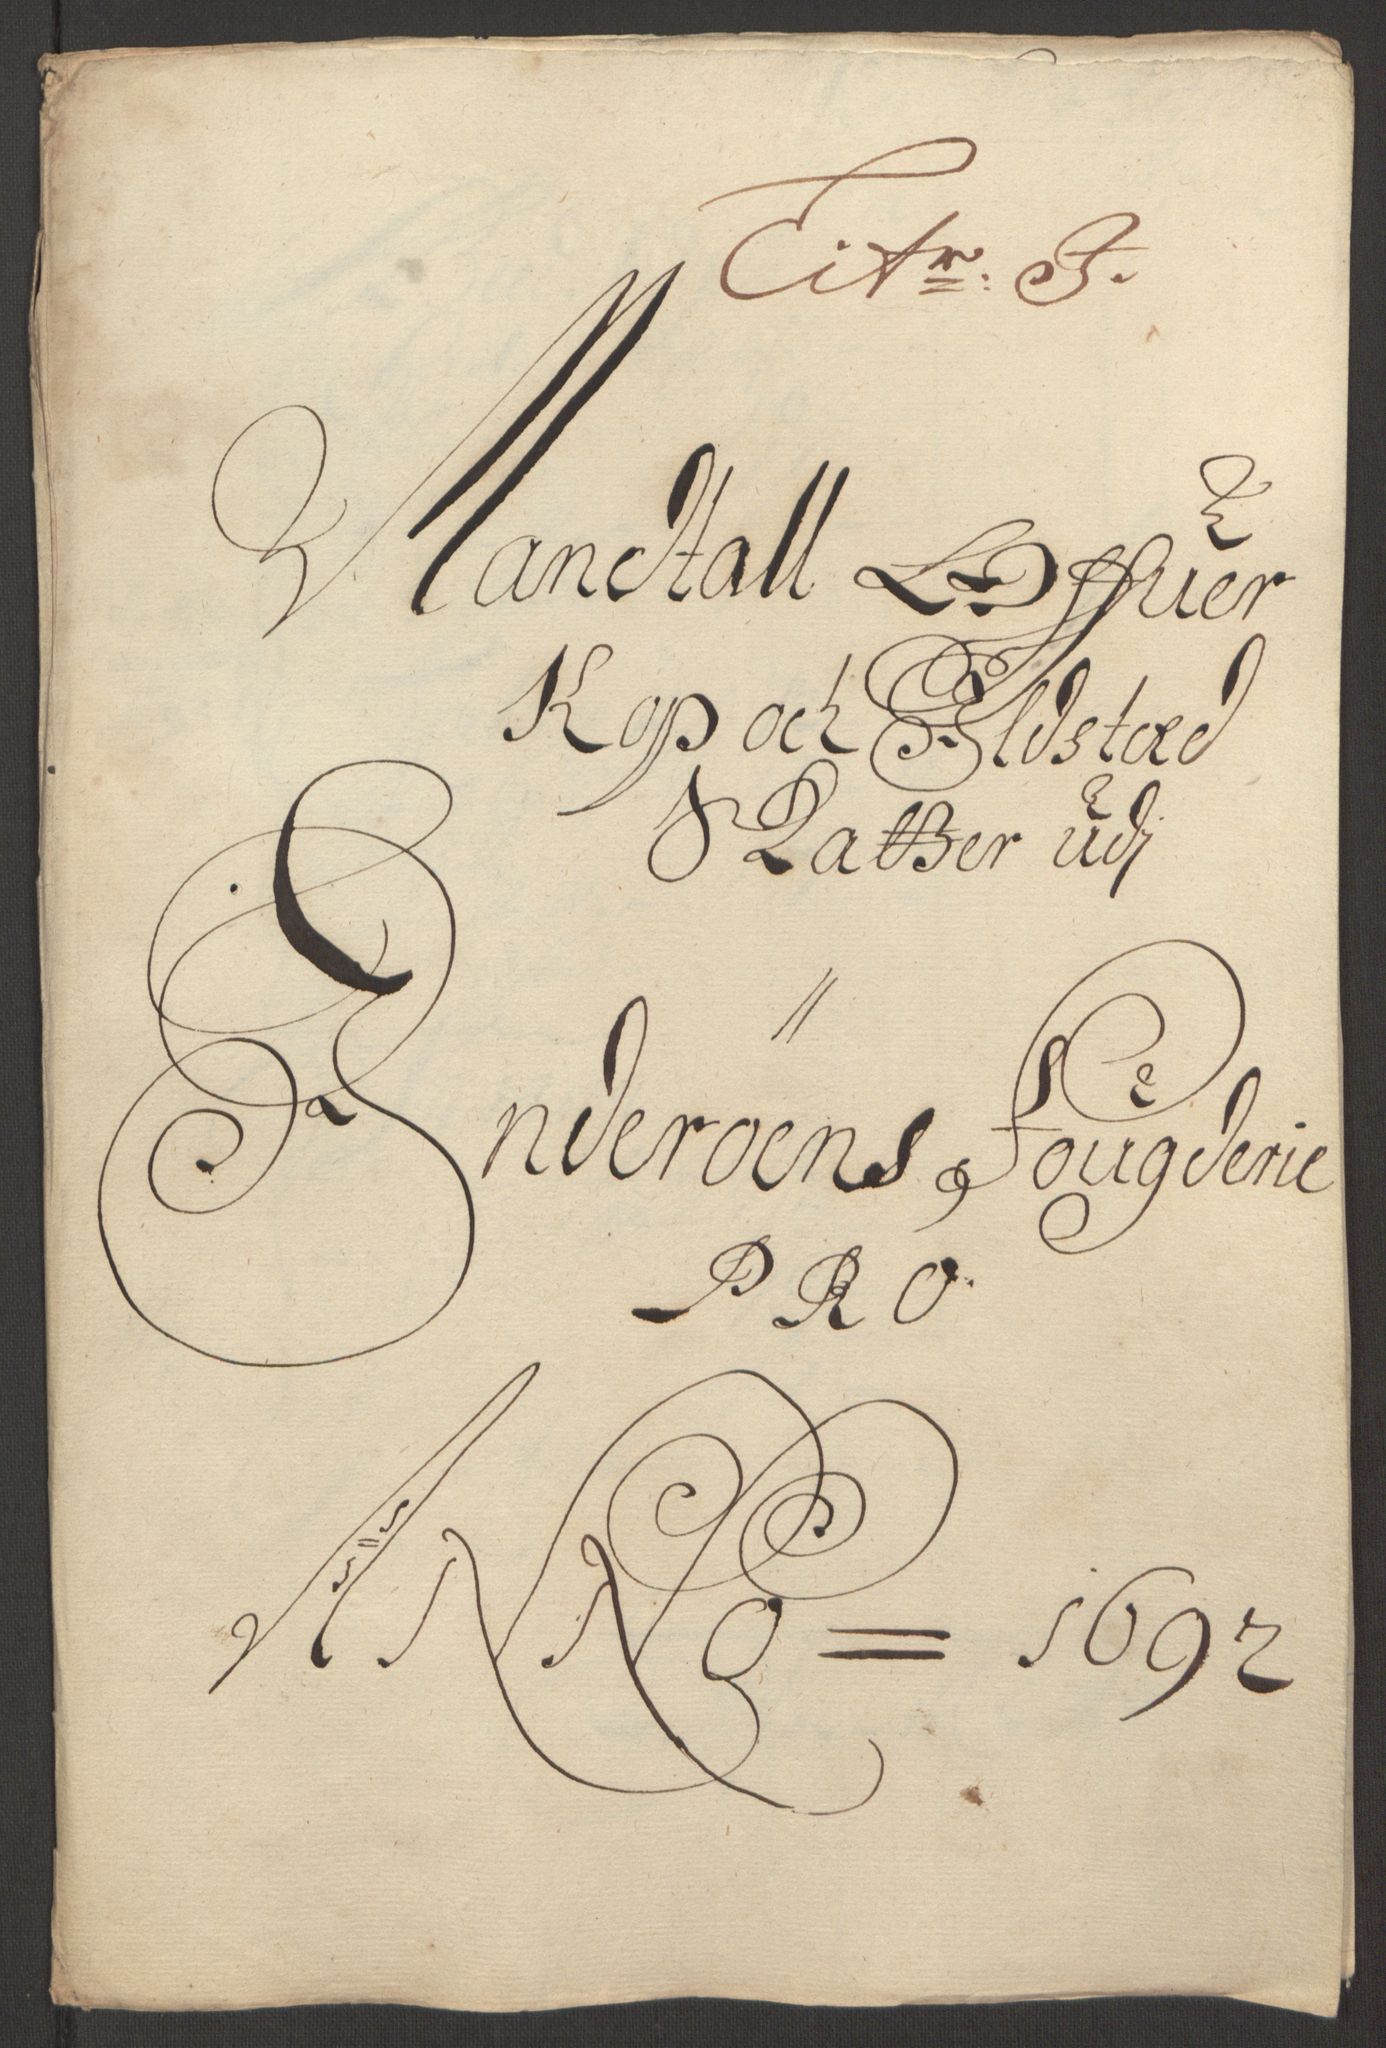 Litr: F.
Mandtall Offuer
Kop och Ildstæd
Skatter udj
Inderøens Fougderie
PRO
ANNO = 1692